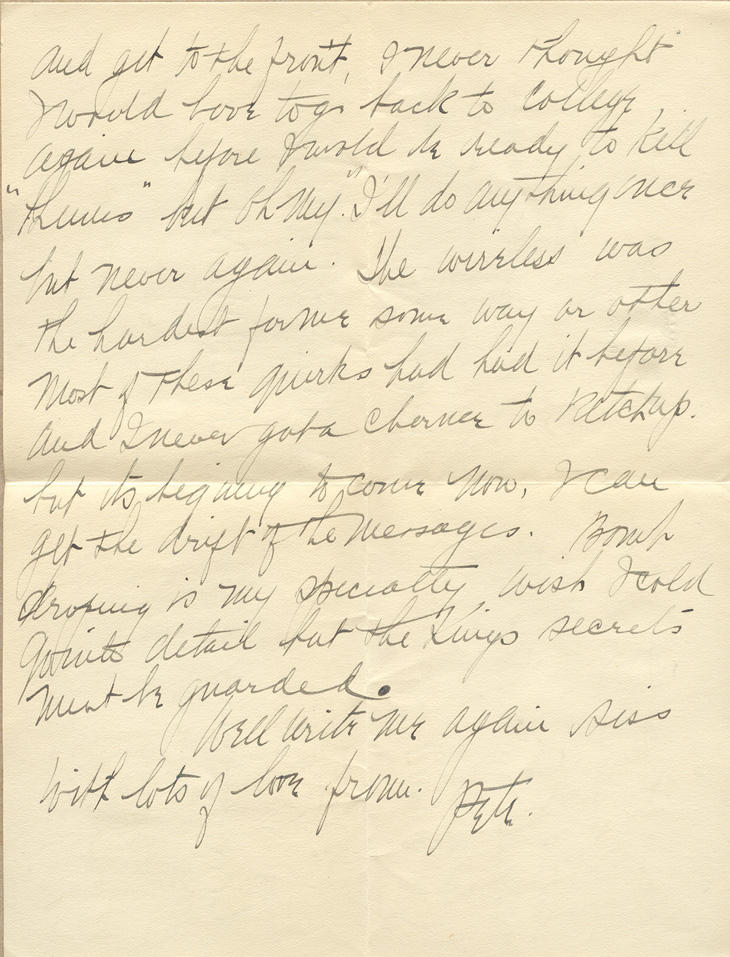 and get to the front, I never thought
I would have to go back to College
again before I would be ready to kill
"Huns" but oh my! I'll do anything once
but never again. The wirrless was
the hardest for me some way or other
most of these quirks had had it before
and I never got a chance to Ketchup.
but its begining to come now, I can
get the drift of the messages. Bomb
droping is my specialty wish I cold
go into detail but the Kings secrets
must be guarded.
Well write me again Siss
with lots of love from.
Pete.